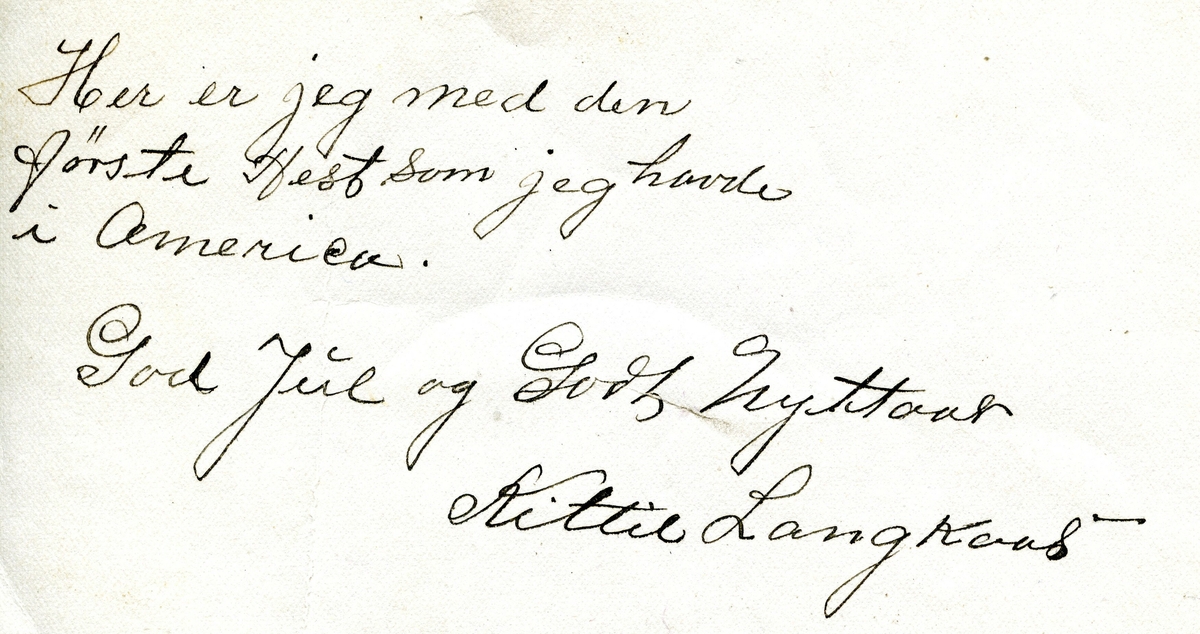 Her er jeg med den
förste Hest som jeg havde
i America.
God Jul og Godt Nyttaar
Kittil Langkaas